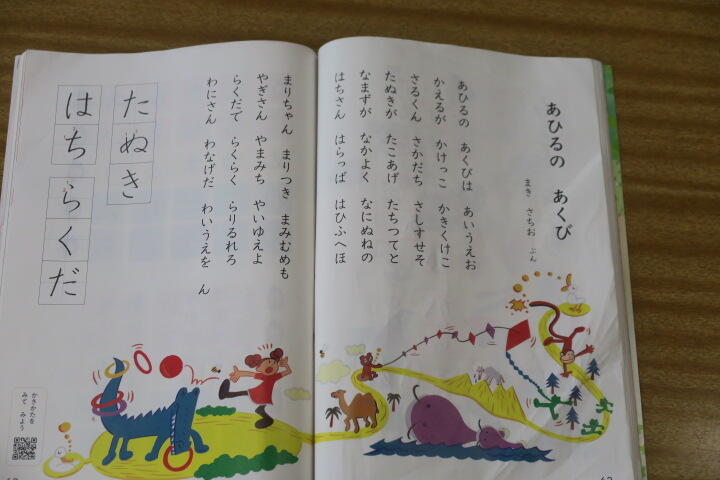 あひるの あくび
まき さちお ぶん
あひるの あくびは あいうえお
かえるが かけっこ かきくけこ
さるくん さかだち さしすせそ
たぬきが たこあげ たちつてと
なまずが なかよく なにぬねの
はちさん はらっぱ はひふへほ
まりちゃん まりつき まみむめも
やぎさん やまみち やいゆえよ
らくだて らくらく らりるれろ
わにさん わなげだ わいうえを ん
たぬき
はち
らくだ
かきかたを
みて みよう